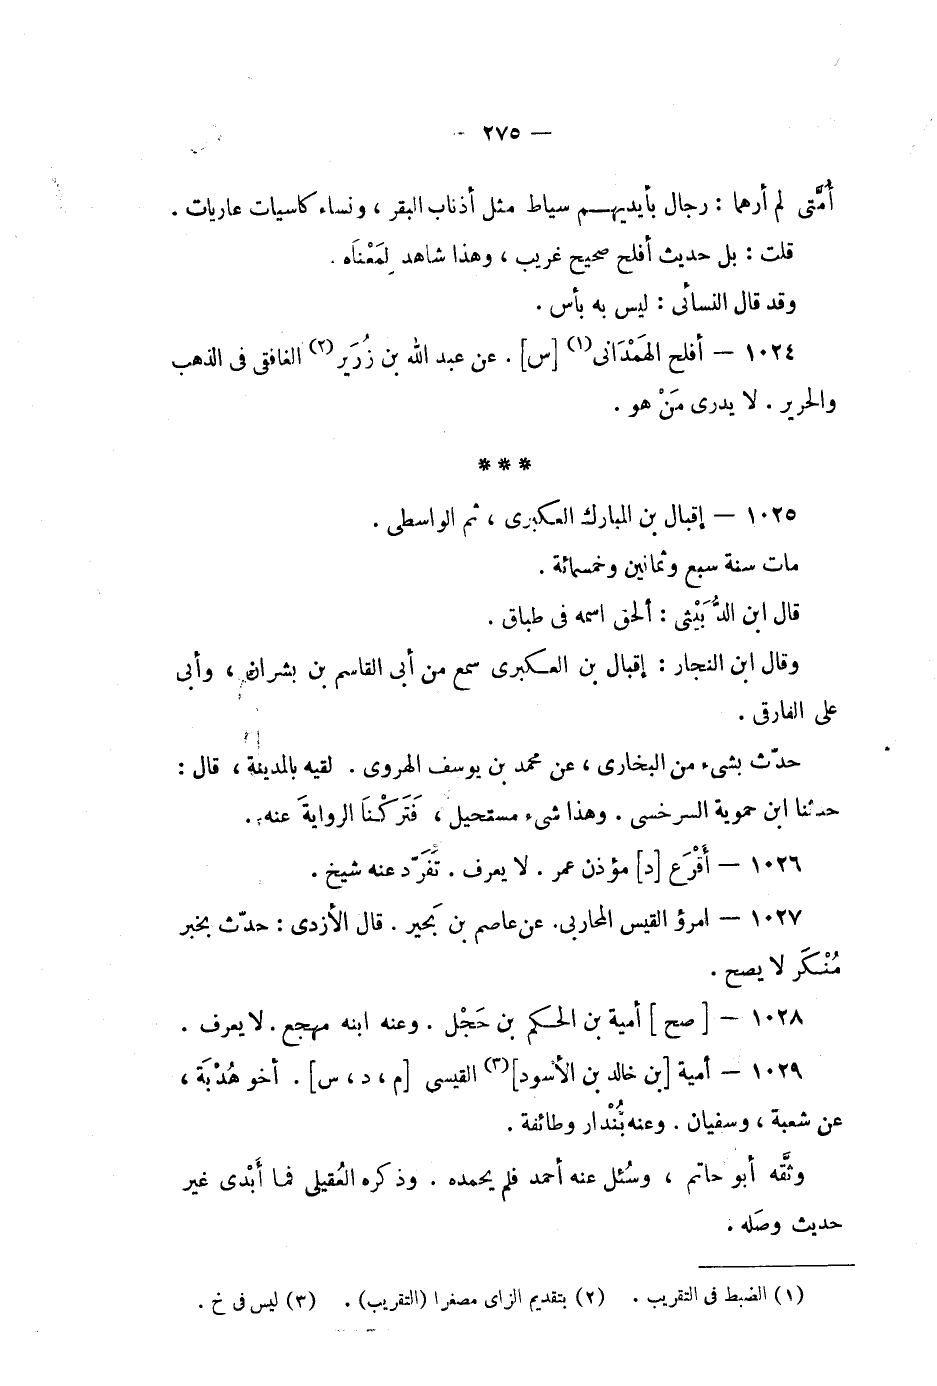 — ٢٧٥ —
أُمَّتى لم أرهما : رجال بأيديهـم سياط مثل أذناب البقر ، ونساء كاسيات عاريات .
قلت : بل حديث أفلح صحيح غريب ، وهذا شاهد لِمَعْنَاه .
وقد قال النسائى : ليس به بأس .
١٠٢٤ — أفلح الهَمْدَانى(١) [س] . عن عبد الله بن زُرَير(٢) الغافقى فى الذهب
والحرير . لا يدرى مَنْ هو .
***
١٠٢٥ — إقبال بن المبارك العكبرى ، ثم الواسطى .
مات سنة سبع وثمانين وخمسمائة .
قال ابن الدُّبَيْثى : ألحق اسمه فى طباق .
وقال ابن النجار : إقبال بن العكبرى سمع من أبى القاسم بن بشران ، وأبى
على الفارقى .
حدّث بشىء من البخارى ، عن محمد بن يوسف الهروى . لقيه بالمدينة ، قال :
حدثنا ابن حموية السرخسى . وهذا شىء مستحيل ، فَتَرَكْنَا الروايةَ عنه .
١٠٢٦ — أَقْرَع [د] مؤذن عمر . لا يعرف . تَفَرَّد عنه شيخ .
١٠٢٧ — امرؤ القيس المحاربى. عن عاصم بن بَحير . قال الأزدى : حدّث بخبر
مُنْكَر لا يصح .
١٠٢٨ — [ صح ] أمية بن الحكم بن حَجْل . وعنه ابنه مهجع . لا يعرف .
١٠٢٩ — أمية [بن خالد بن الأسود](٣) القيسى [م ، د ، س] . أخو هُدْبَة ،
عن شعبة ، وسفيان . وعنه بُنْدار وطائفة .
وثَّقه أبو حاتم ، وسُئل عنه أحمد فلم يحمده . وذكره العُقيلى فما أَبْدى غير
حديث وصَله .
(١) الضبط فى التقريب . (٢) بتقديم الزاى مصغرا (التقريب) . (٣) ليس فى خ .